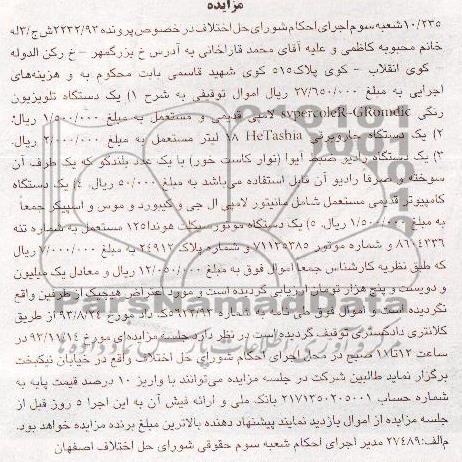 مزایده
۱۰/۲۳۵شعبه سوم اجرای احکام شورای حل اختلاف در خصوص پرونده ۲۲۳۲/۹۳ش ج/۳له
خانم محبوبه کاظمی و علیه آقای محمد قاراخانی به آدرس خ بزرگمهر – خ رکن الدوله
– کوی انقلاب – کوی پلاک۵۱۵ کوی شهید قاسمی بابت محکوم به و هزینه‌های
اجرایی به مبلغ ۲۷/۶۵۰/۰۰۰ ریال اموال توقیفی به شرح ۱) یک دستگاه تلویزیون
رنگی svpercoleR-GRomdic لامپی قدیمی و مستعمل به مبلغ ۱/۵۰۰/۰۰۰ ریال.
۲) یک دستگاه جاروبرقی HeTashia ۱۸ لیتر مستعمل به مبلغ ۲/۰۰۰/۰۰۰ ریال.
۳) یک دستگاه رادیو ضبط ایوا (نوار کاست خور) با یک عدد بلندگو که یک طرف آن
سوخته و صرفا رادیو آن قابل استفاده می‌باشد به مبلغ ۵۰/۰۰۰ ریال. ۴) یک دستگاه
کامپیوتر قدیمی مستعمل شامل مانیتور لامپی ال جی و کیبورد و موس و اسپیکر جمعاً
به مبلغ ۱/۵۰۰/۰۰۰ ریال. ۵) یک دستگاه موتور سیکلت هوندا۱۲۵ مستعمل به شماره تنه
۸۶۰۴۳۳۶ و شماره موتور ۷۱۱۳۵۳۸۵ و شماره پلاک ۲۴۹۱۳ به مبلغ ۷/۰۰۰/۰۰۰ ریال
که طبق نظریه کارشناس جمعا اموال فوق به مبلغ ۱۲/۰۵۰/۰۰۰ ریال و معادل یک میلیون
و دویست و پنج هزار تومان ارزیابی گردیده است و مورد اعتراض هیچیک از طرفین واقع
نگردیده است و اموال فوق طی نامه به شماره ۵۶۱۳/۹۳ک داد مورخ ۹۳/۸/۲۴ از طریق
کلانتری دادگستری توقیف گردیده است در نظر دارد جلسه مزایده‌ای مورخ ۹۳/۱۱/۱۲
در ساعت ۱۲تا۱۷ صبح در محل اجرای احکام شورای حل اختلاف واقع در خیابان نیکبخت
برگزار نماید طالبین شرکت در جلسه مزایده می‌توانند با واریز ۱۰ درصد قیمت پایه به
شماره حساب ۲۱۷۱۳۵۰۲۰۵۰۰۱ بانک ملی و ارائه فیش آن به این اجرا ۵ روز قبل از
جلسه مزایده از اموال بازدید نمایند پیشنهاد دهنده بالاترین مبلغ برنده مزایده خواهد بود.
م‌الف:۲۷۴۸۹ مدیر اجرای احکام شعبه سوم حقوقی شورای حل اختلاف اصفهان
ParsNamadData